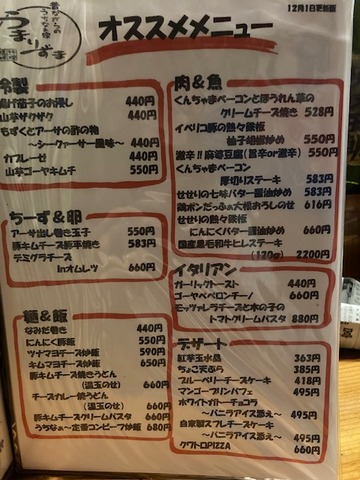 うまりずま
オススメメニュー
12月1日更新版
冷製
揚げ茄子のお浸し 440円
山芋ザクザク 440円
もずくとアーサの酢の物
～シークァーサー風味～ 440円
カプレーゼ 440円
山芋コーヤキムチ 550円
ちーず&卵
アーサ出し巻き玉子 550円
豚キムチチーズ鉄平焼き 583円
デミグラチーズ
inオムレツ 660円
麺&飯
なみだ巻き 440円
にんにく豚飯 550円
ツナマヨチーズ炒飯 590円
キムマヨチーズ炒飯 650円
豚キムチチーズ焼きうどん
(温玉のせ) 660円
チーズカレー焼うどん
(温玉のせ) 660円
豚キムチチーズクリームパスタ 660円
うちなぁ～定番コンビーフ炒飯 680円
肉&魚
くんちゃまベーコンとほうれん草の
クリームチーズ焼き 528円
イベリコ豚の熱々鉄板
柚子胡椒炒め 550円
激辛!!麻婆豆腐(旨辛or激辛) 550円
くんちゃまベーコン
厚切りステーキ 583円
せせりの七味バター醤油炒め 583円
鶏ポンだっふぁ大根おろしのせ 616円
せせりの熱々鉄板
にんにくバター醤油炒め 660円
国産黒毛和牛ヒレステーキ
(120g) 2200円
イタリアン
ガーリックトースト 440円
ゴーヤペペロンチーノ 660円
モッツァレラチーズと木の子の
トマトクリームパスタ 880円
デザート
紅芋玉水晶 363円
ちょこ天ぷら 385円
ブルーベリーチーズケーキ 418円
マンゴープリンパフェ 495円
ホワイトガトーチョコラ
～バニラアイス添え～ 495円
自家製スフレチーズケーキ
～バニラアイス添え～ 495円
クワトロPIZZA 660円